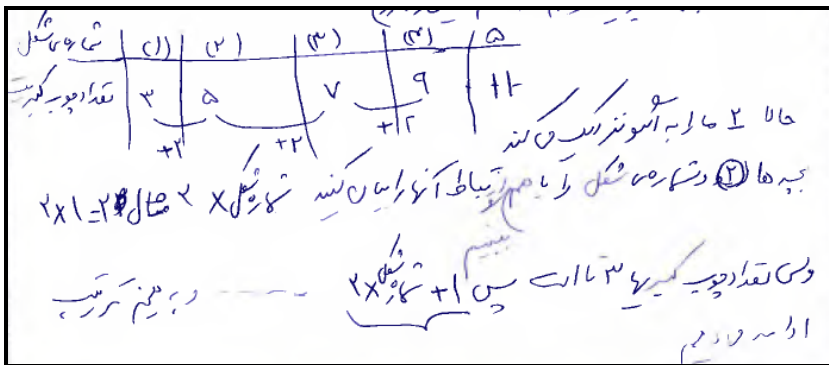 شماره‌ی شکل (۱) (۲) (۳) (۴) ۵
تعداد چوب کبریت ۳ ۵ ۷ ۹ ۱۱
+۲ +۲ +۲
حالا ۲ ما را به آموزند کمک می کند
بچه ها ۲ و شماره‌ی شکل را با هم ببینیم ارتباط آنها را بیان کنید شماره شکل × ۲ مثال ۲×۱=۲
ولی تعداد چوب کبریت ها ۳ تا است پس ۱ + شماره شکل × ۲ ------ و به همین ترتیب
ادامه می دهیم